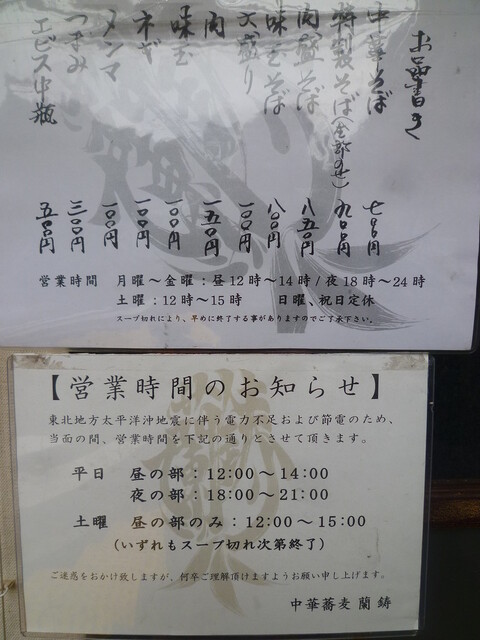 お品書き
中華そば 七〇〇円
特製そば(全部のせ) 九〇〇円
肉盛そば 八五〇円
味玉そば 八〇〇円
大盛り 一〇〇円
肉 一五〇円
味玉 一〇〇円
ネギ 一〇〇円
メンマ 一〇〇円
つまみ 三〇〇円
エビス中瓶 五〇〇円
営業時間 月曜～金曜:昼12時～14時/夜18時～24時
土曜:12時～15時 日曜、祝日定休
スープ切れにより、早めに終了する事がありますのでご了承下さい。
【営業時間のお知らせ】
東北地方太平洋沖地震に伴う電力不足および節電のため、
当面の間、営業時間を下記の通りとさせて頂きます。
平日 昼の部:12:00～14:00
夜の部:18:00～21:00
土曜 昼の部のみ:12:00～15:00
(いずれもスープ切れ次第終了)
ご迷惑をおかけ致しますが、何卒ご理解頂けますようお願い申し上げます。
中華蕎麦 蘭鋳